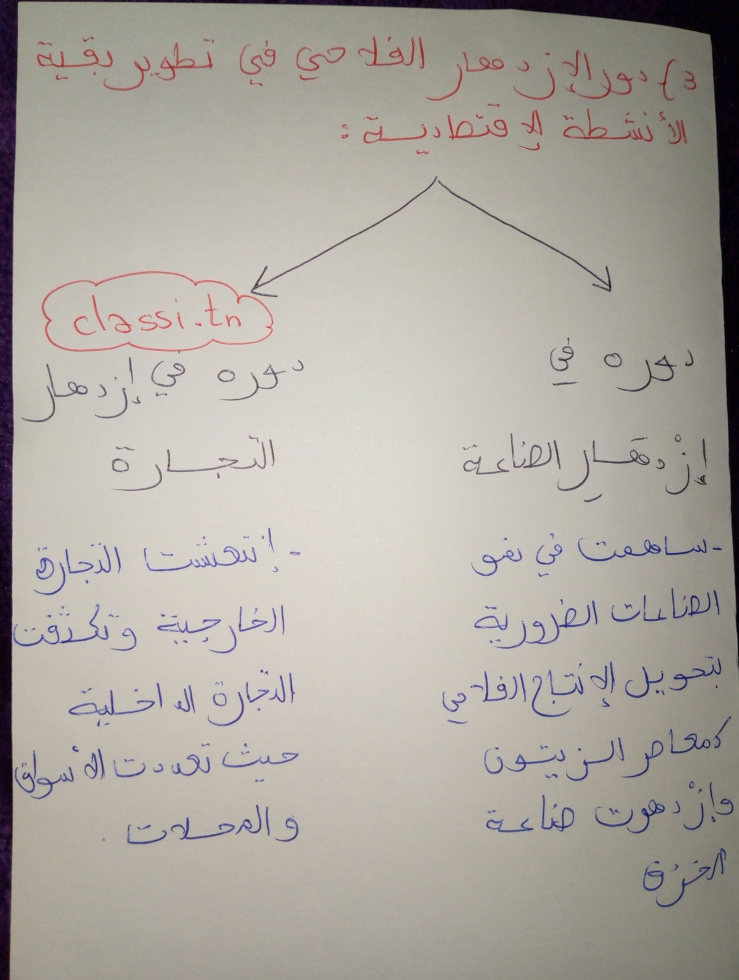 3) دور الإزدهار الفلاحي في تطوير بقية
الأنشطة الإقتصادية :
دوره في
إزْدهار الصناعة
- ساهمت في نمو
الصناعات الضرورية
بتحويل الإنتاج الفلاحي
كمعاصر الزيتون
وإزْدهرت صناعة
الخزف
classi.tn
دوره في إزدهار
التجارة
- إنتعشت التجارة
الخارجية وتكثّفت
التجارة الداخلية
حيث تعددت الأسواق
والمحلات .